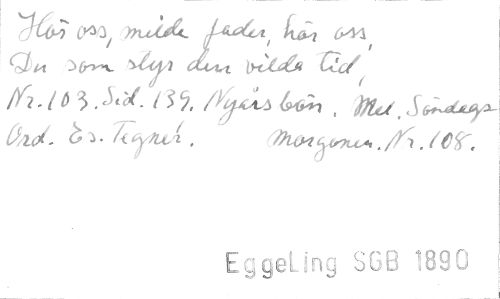 Hör oss, milde fader, hör oss,
Du som styr den vilda tid,
Nr. 103. Sid. 139. Nyårsbön. Mel. Söndags
Ord. Es. Tegnér. morgonen. Nr. 108.
EggeLing SGB 1890